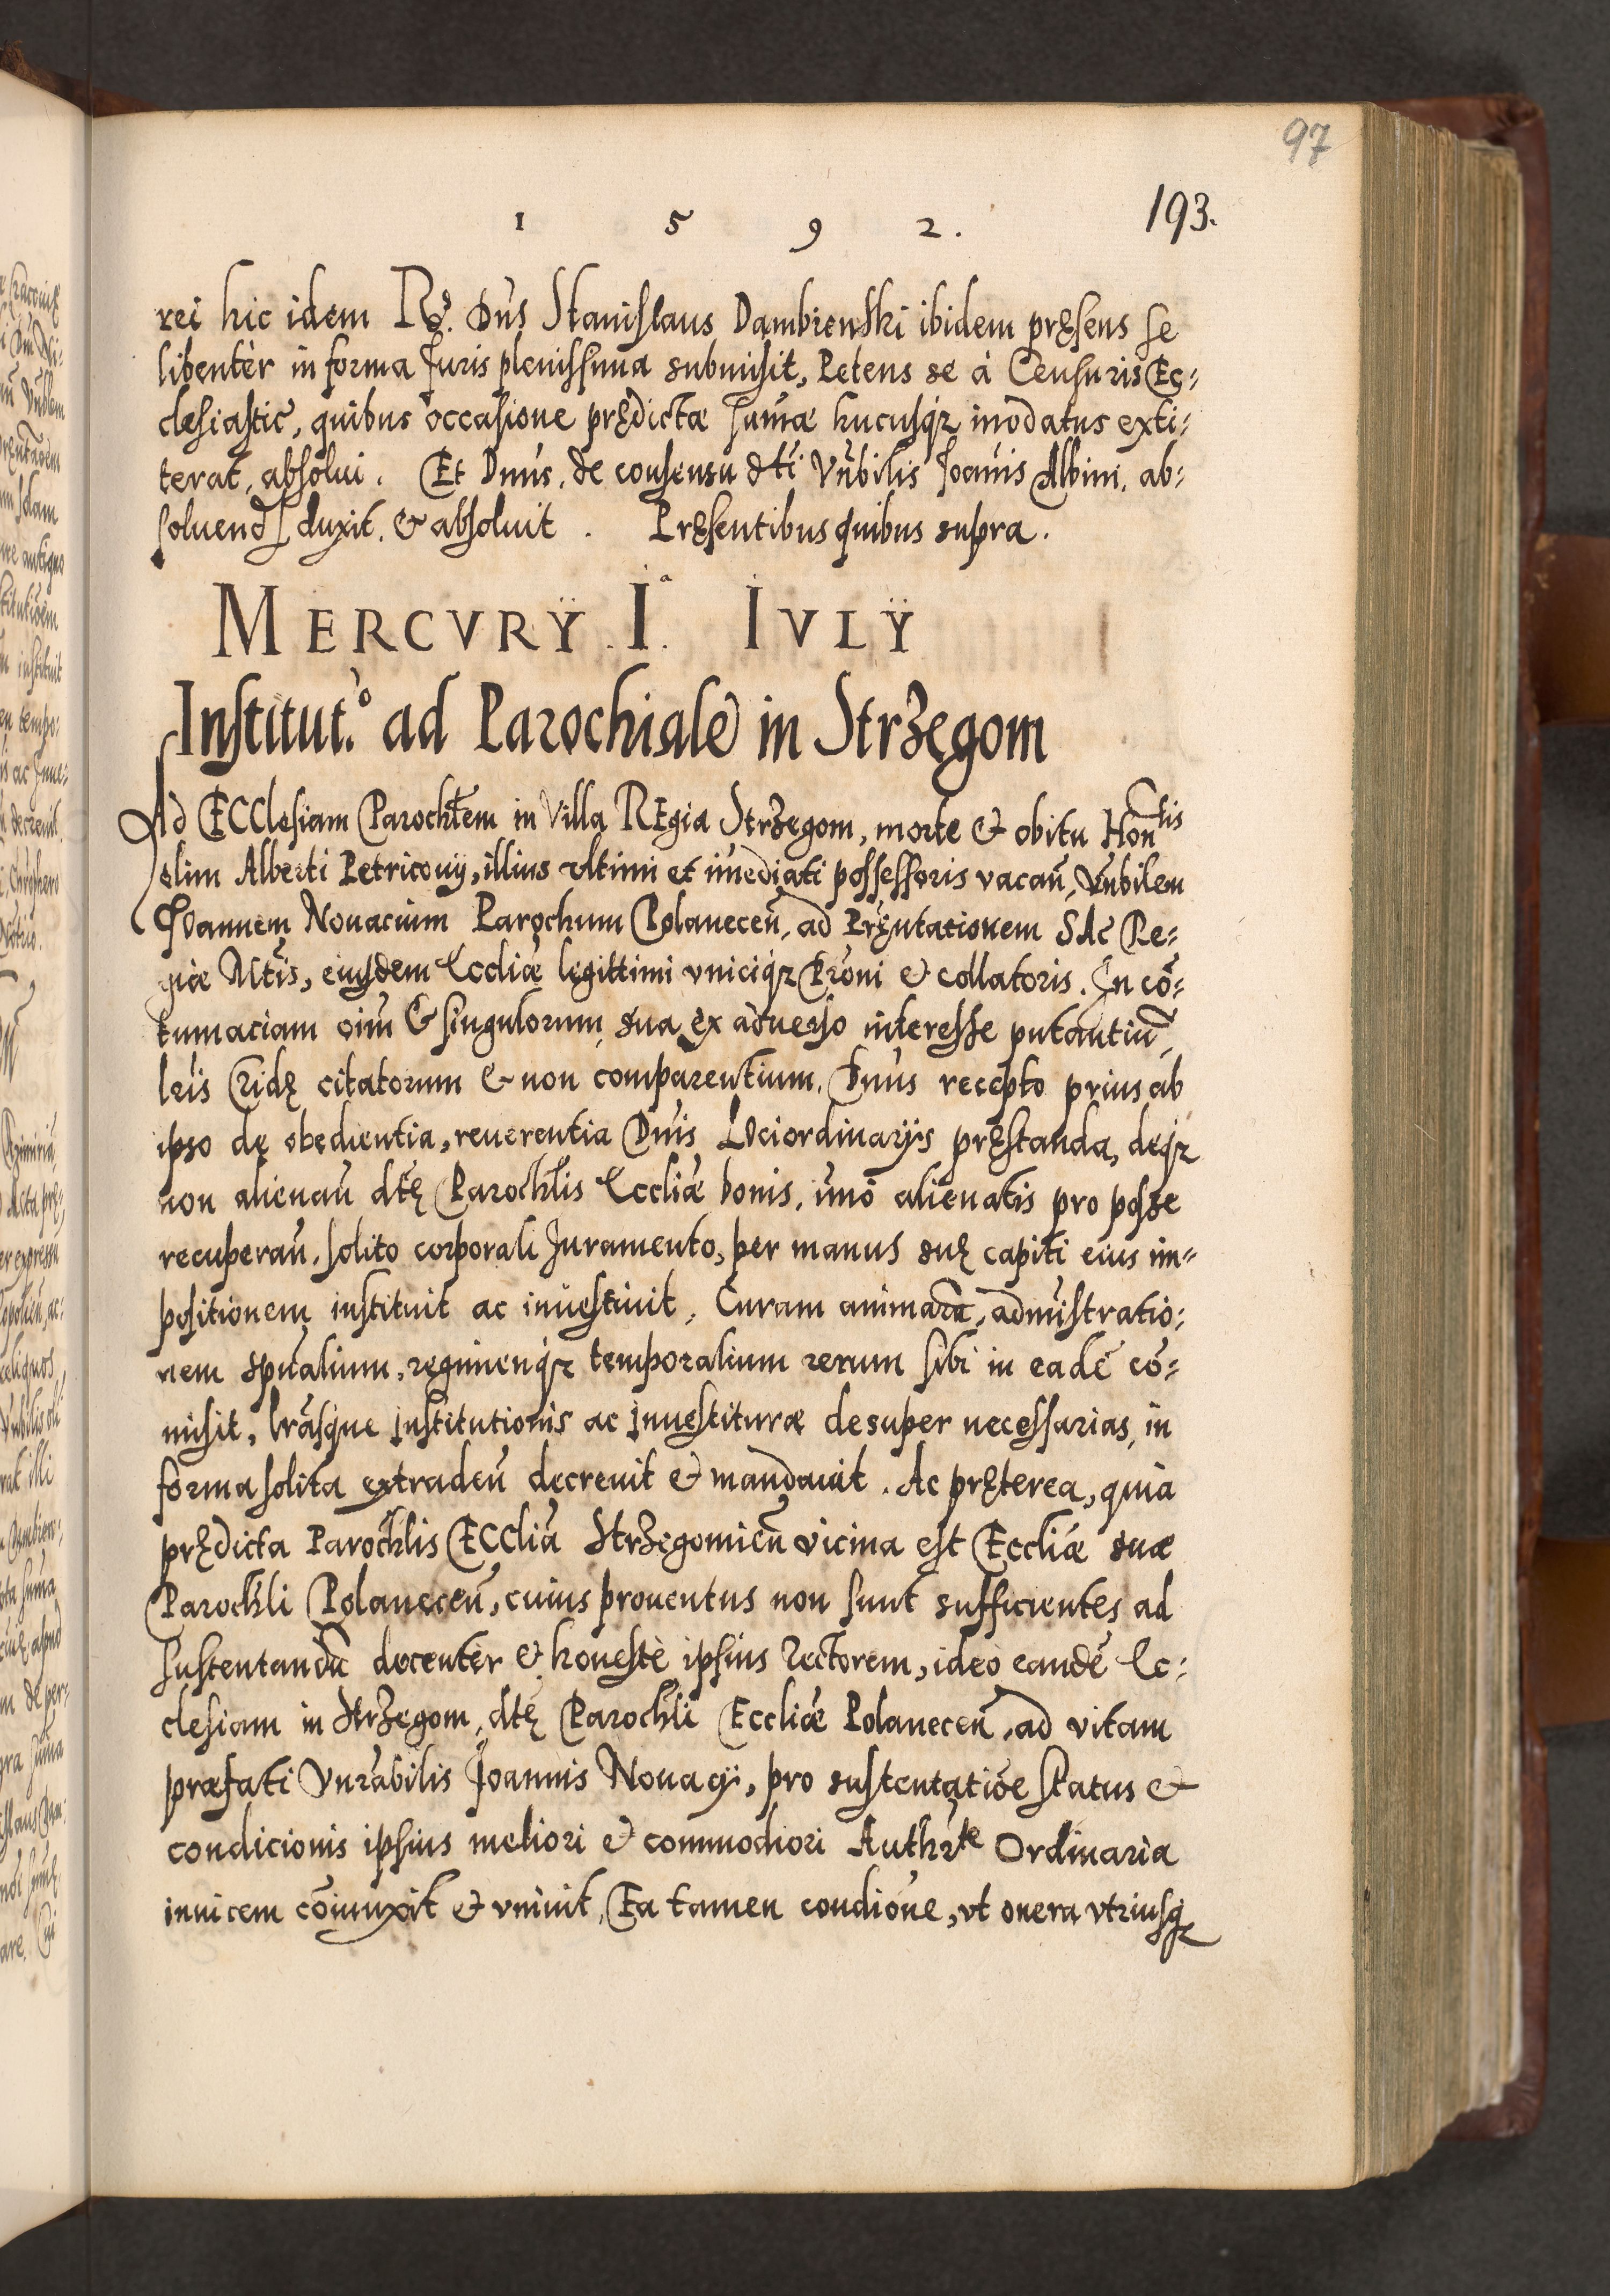 97
1 5 9 2.
193.
rei hic idem Rs. Dns Stanislaus Dambiewski ibidem pręsens se
libentèr in forma Juris plenissima submisit, Petens se à Censuris Ec:
clesiastic, quibus occasione prędictæ summæ hucusq3 inodatus exti:
terat, absolui. Et Dnus, de consensu dti Vnbilis Joannis Albini, ab:
soluend duxit, & absoluit. Pręsentibus quibus supra.
MERCVRŸ. Iª. IVLŸ
Institut.o ad Parochiale in Strzegom
Ad ECClesiam Parochlem in Villa REgia Strzegom, morte & obitu Hontis
olim Alberti Petricouÿ, illius vltimi et imediati possessoris vacan̄, Vnbilem
JOannem Nouacium Parochum Polanecen̄, ad Pręntationem SAc Re:
giæ Mtis, eiusdem Eccliæ legittimi vniciq3 Proni & collatoris. In cō:
tumaciam oim̄ & singulorum, sua ex aduerso interesse putantiū,
leis cridę citatorum & non comparentium. Dnus recepto prius ab
ipso de obedientia, reuerentia Dnis LOciordinarijs pręstanda, deq3
non alienan̄ dtę Parochlis Eccliæ bonis, imò alienatis pro posse
recuperan̄, solito corporali Juramento, per manus suę capiti eius im=
positionem instituit ac inuestiuit, Curam animarū, administratio:
nem spūalium, regimenq3 temporalium rerum sibi in eadē cō:
misit, lrasque institutionis ac inuestituræ desuper necessarias, in
forma solita extraden̄ decreuit & mandauit. Ac pręterea, quia
prędicta Parochlis ECCliā Strzegomien̄ vicina est Eccliæ suæ
Parochli Polanecen̄, cuius prouentus non sunt sufficientes ad
sustentandū decentèr & honestè ipsius Rectorem, ideò eandē Ec:
clesiam in Strzegom, dtę Parochli Eccliæ Polanecen̄, ad vitam
præfati Vnrabilis Joannis Nouacÿ, pro sustentatiōe status &
condicionis ipsius meliori & commodiori Authrte Ordinaria
inuicem cōiunxit & vniuit, Ea tamen condiōne, vt onera vtriusq3